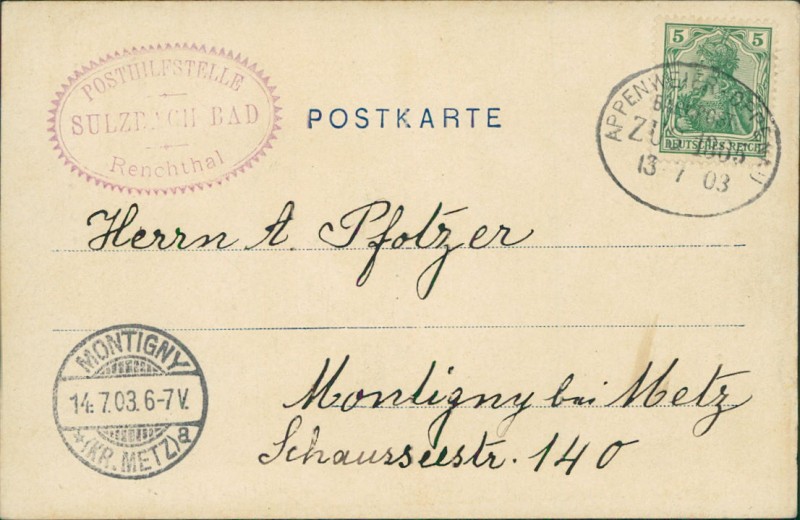 POSTHILFSTELLE
SULZBACH BAD
Renchthal
POSTKARTE
5 5
DEUTSCHES REICH
APPENWEIER
BAHNPOST
ZUG 1005
13 7 03
Herrn A. Pfotzer
MONTIGNY
14.7.03.6-7V.
*(KR. METZ)a
Montigny bei Metz
Schausseestr. 140